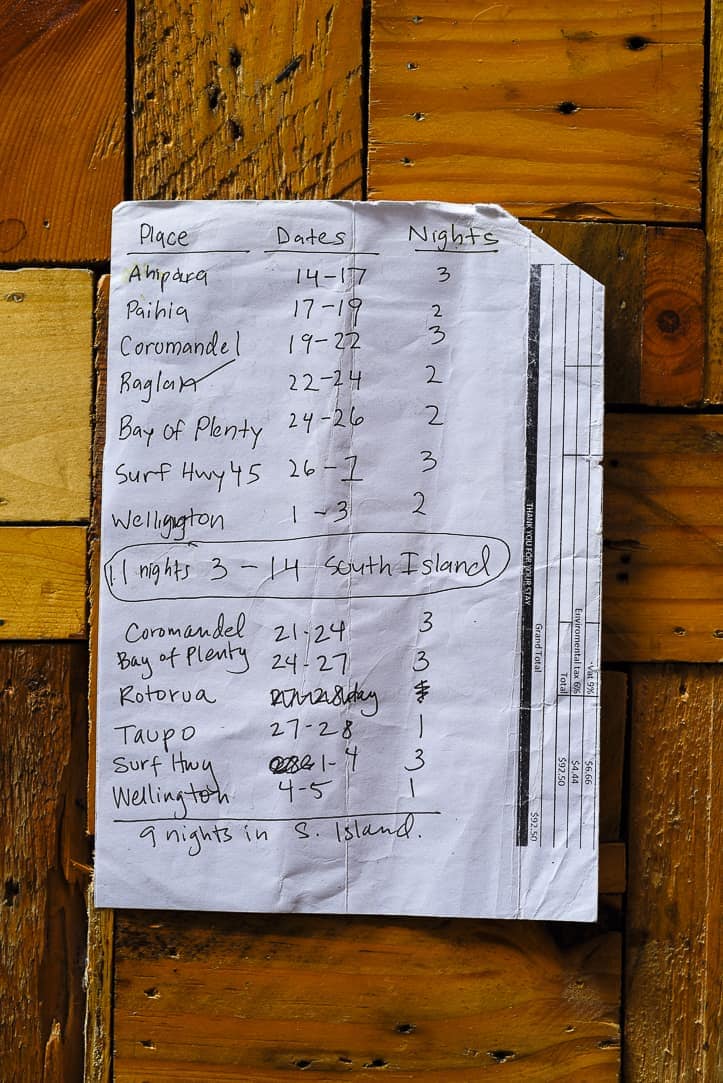 Place Dates Nights
Ahipara 14-17 3
Paihia 17-19 2
Coromandel 19-22 3
Raglan 22-24 2
Bay of Plenty 24-26 2
Surf Hwy 45 26-1 3
Wellington 1-3 2
11 nights 3-14 South Island
Coromandel 21-24 3
Bay of Plenty 24-27 3
Rotorua day
Taupo 27-28 1
Surf Hwy 1-4 3
Wellington 4-5 1
9 nights in S. Island.
Vat 9% $6.66
Enviromental tax 6% $4.44
Total $92.50
Grand Total $92.50
THANK YOU FOR YOUR STAY